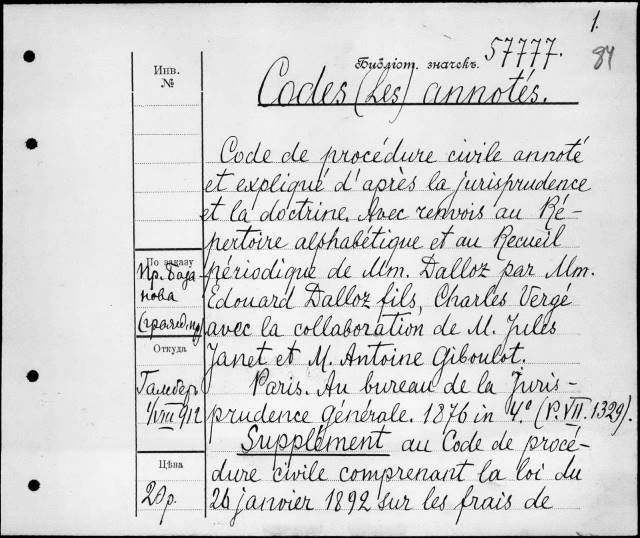 1.
84
Библіот. значекъ. 57777.
Codes (Les) annotés.
Инв.
№
Code de procédure civile annoté
et expliqué d'après la jurisprudence
et la doctrine. Avec renvois au Ré-
pertoire alphabétique et au Recueil
По заказу
périodique de Mm. Dalloz par Mm.
Edouard Dalloz fils, Charles Vergé
avec la collaboration de M. Jules
Откуда
Janet et M. Antoine Giboulot.
Paris. Au bureau de la Juris-
prudence générale. 1876 in 4.° (P. VII. 1329).
Supplément au Code de procé-
Цѣна
dure civile comprenant la loi du
20 р.
janvier 1892 sur les frais de